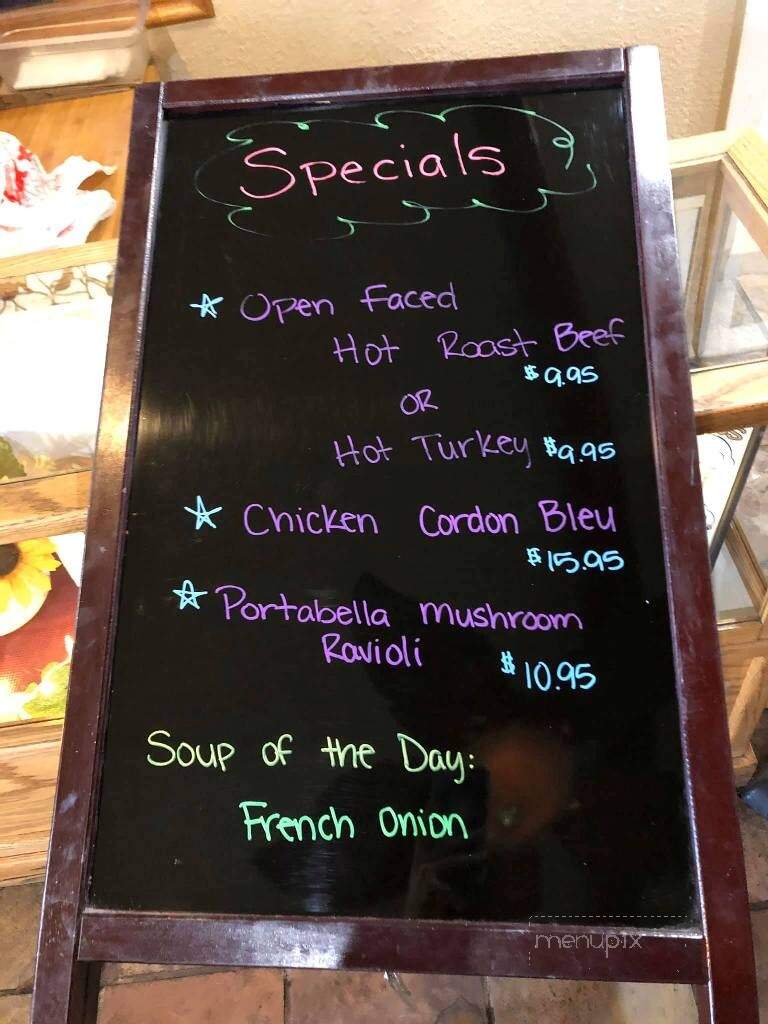 Specials
Open Faced
Hot Roast Beef
$9.95
OR
Hot Turkey $9.95
Chicken Cordon Bleu
$15.95
Portabella mushroom
Ravioli $10.95
Soup of the Day:
French Onion
menupix